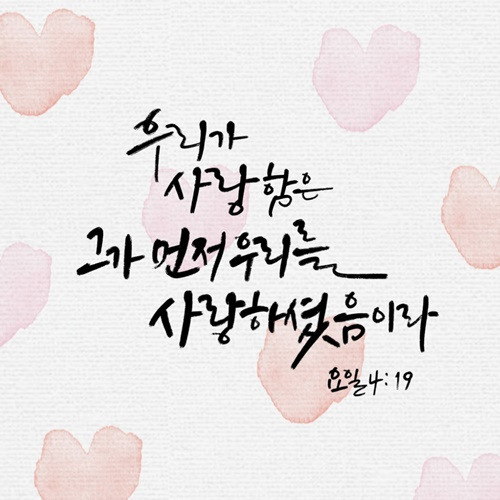 우리가
사랑함은
그가 먼저 우리를
사랑하셨음이라
요일 4:19